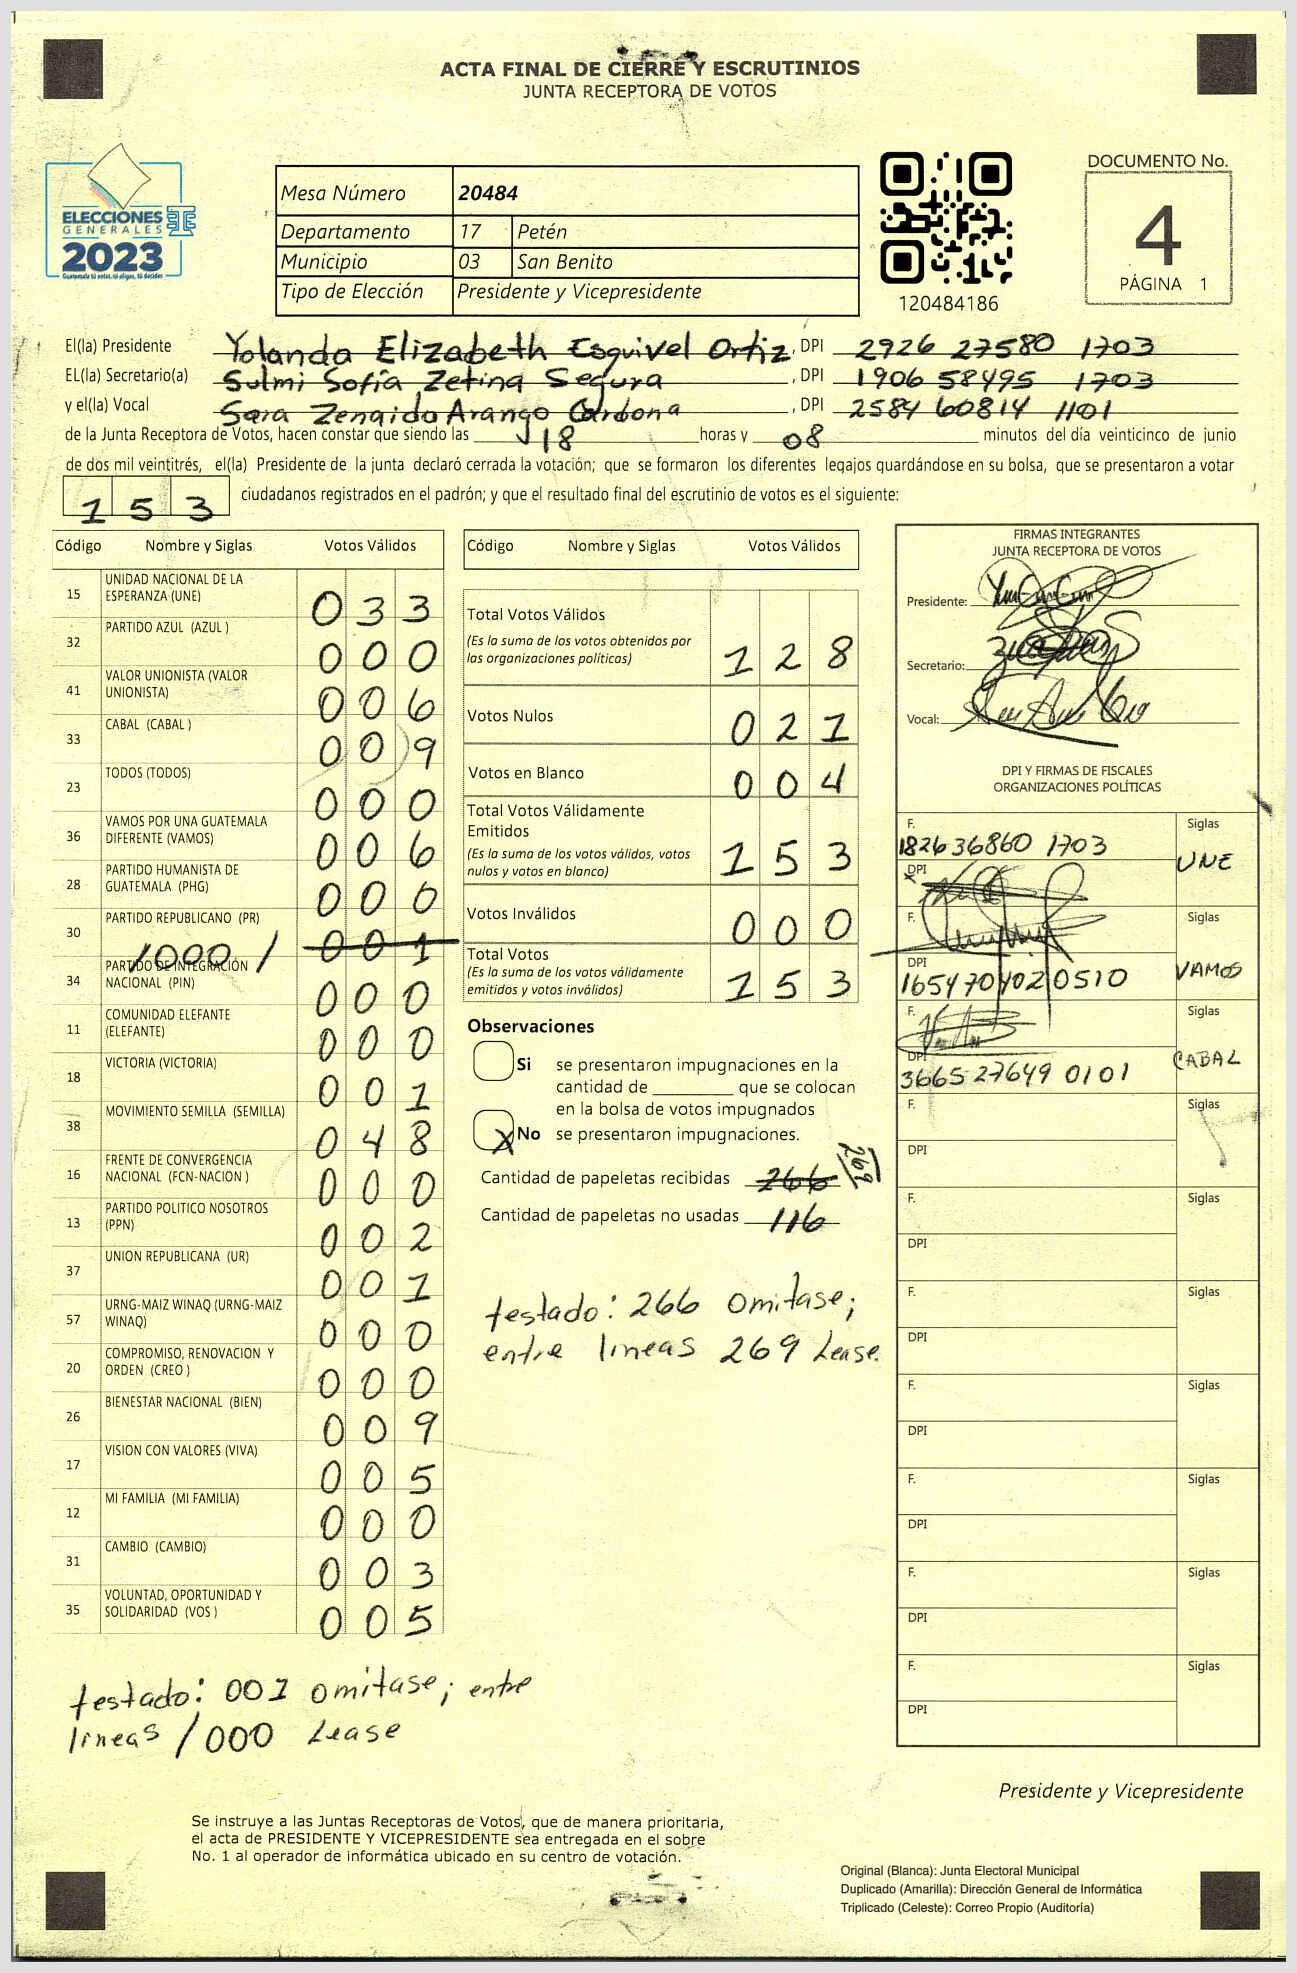 ACTA FINAL DE CIERRE Y ESCRUTINIOS
JUNTA RECEPTORA DE VOTOS
ELECCIONES
GENERALES
2023
Guatemala tú votas, tú eliges, tú decides
Mesa Número 20484
Departamento 17 Petén
Municipio 03 San Benito
Tipo de Elección Presidente y Vicepresidente
120484186
DOCUMENTO No.
4
PÁGINA 1
El(la) Presidente Yolanda Elizabeth Esquivel Ortiz, DPI 2926 27580 1703
EL(la) Secretario(a) Sulmi Sofía Zetina Segura, DPI 1906 58495 1703
y el(la) Vocal Sara Zenaida Arango Cardona, DPI 2584 60814 1101
de la Junta Receptora de Votos, hacen constar que siendo las 18 horas y 08 minutos del día veinticinco de junio
de dos mil veintitrés, el(la) Presidente de la junta declaró cerrada la votación; que se formaron los diferentes legajos quardándose en su bolsa, que se presentaron a votar
153 ciudadanos registrados en el padrón; y que el resultado final del escrutinio de votos es el siguiente:
Código Nombre y Siglas Votos Válidos
15 UNIDAD NACIONAL DE LA ESPERANZA (UNE) 033
32 PARTIDO AZUL (AZUL ) 000
41 VALOR UNIONISTA (VALOR UNIONISTA) 006
33 CABAL (CABAL ) 009
23 TODOS (TODOS) 000
36 VAMOS POR UNA GUATEMALA DIFERENTE (VAMOS) 006
28 PARTIDO HUMANISTA DE GUATEMALA (PHG) 000
30 PARTIDO REPUBLICANO (PR) /000/ 001
34 PARTIDO DE INTEGRACIÓN NACIONAL (PIN) 000
11 COMUNIDAD ELEFANTE (ELEFANTE) 000
18 VICTORIA (VICTORIA) 001
38 MOVIMIENTO SEMILLA (SEMILLA) 048
16 FRENTE DE CONVERGENCIA NACIONAL (FCN-NACION ) 000
13 PARTIDO POLITICO NOSOTROS (PPN) 002
37 UNION REPUBLICANA (UR) 001
57 URNG-MAIZ WINAQ (URNG-MAIZ WINAQ) 000
20 COMPROMISO, RENOVACION Y ORDEN (CREO ) 000
26 BIENESTAR NACIONAL (BIEN) 009
17 VISION CON VALORES (VIVA) 005
12 MI FAMILIA (MI FAMILIA) 000
31 CAMBIO (CAMBIO) 003
35 VOLUNTAD, OPORTUNIDAD Y SOLIDARIDAD (VOS ) 005
testado: 001 omitase; entre
lineas /000 Lease
Código Nombre y Siglas Votos Válidos
Total Votos Válidos 128
(Es la suma de los votos obtenidos por
las organizaciones políticas)
Votos Nulos 021
Votos en Blanco 004
Total Votos Válidamente
Emitidos 153
(Es la suma de los votos válidos, votos
nulos y votos en blanco)
Votos Inválidos 000
Total Votos 153
(Es la suma de los votos válidamente
emitidos y votos inválidos)
Observaciones
Si se presentaron impugnaciones en la
cantidad de ________ que se colocan
en la bolsa de votos impugnados
X No se presentaron impugnaciones.
Cantidad de papeletas recibidas 266 /269/
Cantidad de papeletas no usadas 116
testado: 266 omitase;
entre lineas 269 Lease.
FIRMAS INTEGRANTES
JUNTA RECEPTORA DE VOTOS
Presidente:
Secretario:
Vocal:
DPI Y FIRMAS DE FISCALES
ORGANIZACIONES POLÍTICAS
F. Siglas
1826 36860 1703 UNE
DPI
F. Siglas
DPI VAMOS
1654704020510
F. Siglas
DPI CABAL
3665 27649 0101
F. Siglas
DPI
F. Siglas
DPI
F. Siglas
DPI
F. Siglas
DPI
F. Siglas
DPI
F. Siglas
DPI
F. Siglas
DPI
Presidente y Vicepresidente
Se instruye a las Juntas Receptoras de Votos, que de manera prioritaria,
el acta de PRESIDENTE Y VICEPRESIDENTE sea entregada en el sobre
No. 1 al operador de informática ubicado en su centro de votación.
Original (Blanca): Junta Electoral Municipal
Duplicado (Amarilla): Dirección General de Informática
Triplicado (Celeste): Correo Propio (Auditoría)